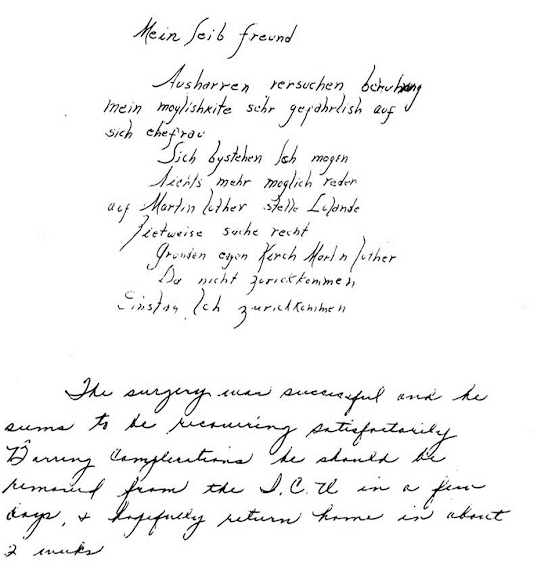 Mein leib freund
Ausharren versuchen
mein moglishkite sehr gefahrlish auf
sich ehefrau
Sich bystehen Ich mogen
Nichts mehr moglich reden
auf Martin luther stelle
suche recht
Grunden egen Kirch Martin luther
Du nicht zurickkommen
Ich zurickkommen
The surgery was successful and he
seems to be recovering satisfactorily
Barring complications he should be
removed from the I.C.U in a few
days, & hopefully return home in about
2 weeks